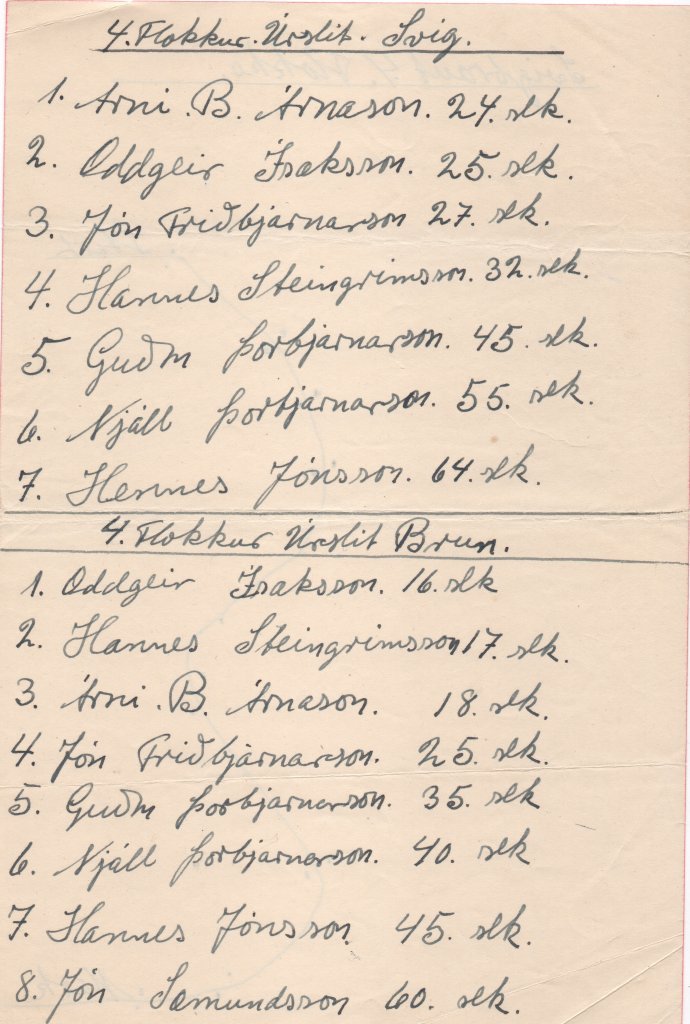 4. Flokkur. Úrslit. Svig.
1. Árni. B. Árnason. 24. sek.
2. Oddgeir Ísaksson. 25. sek.
3. Jón Friðbjarnarson 27. sek.
4. Hannes Steingrimsson. 32. sek.
5. Guðm Þorbjarnarson. 45. sek.
6. Njáll Þorbjarnarson. 55. sek.
7. Hannes Jónsson. 64. sek.
4. Flokkur Úrslit Brun.
1. Oddgeir Ísaksson. 16. sek
2. Hannes Steingrimsson 17. sek.
3. Árni. B. Árnason. 18. sek.
4. Jón Friðbjárnarson. 25. sek.
5. Guðm Þorbjarnarson. 35. sek
6. Njáll Þorbjarnarson. 40. sek
7. Hannes Jónsson. 45. sek.
8. Jón Sæmundsson 60. sek.